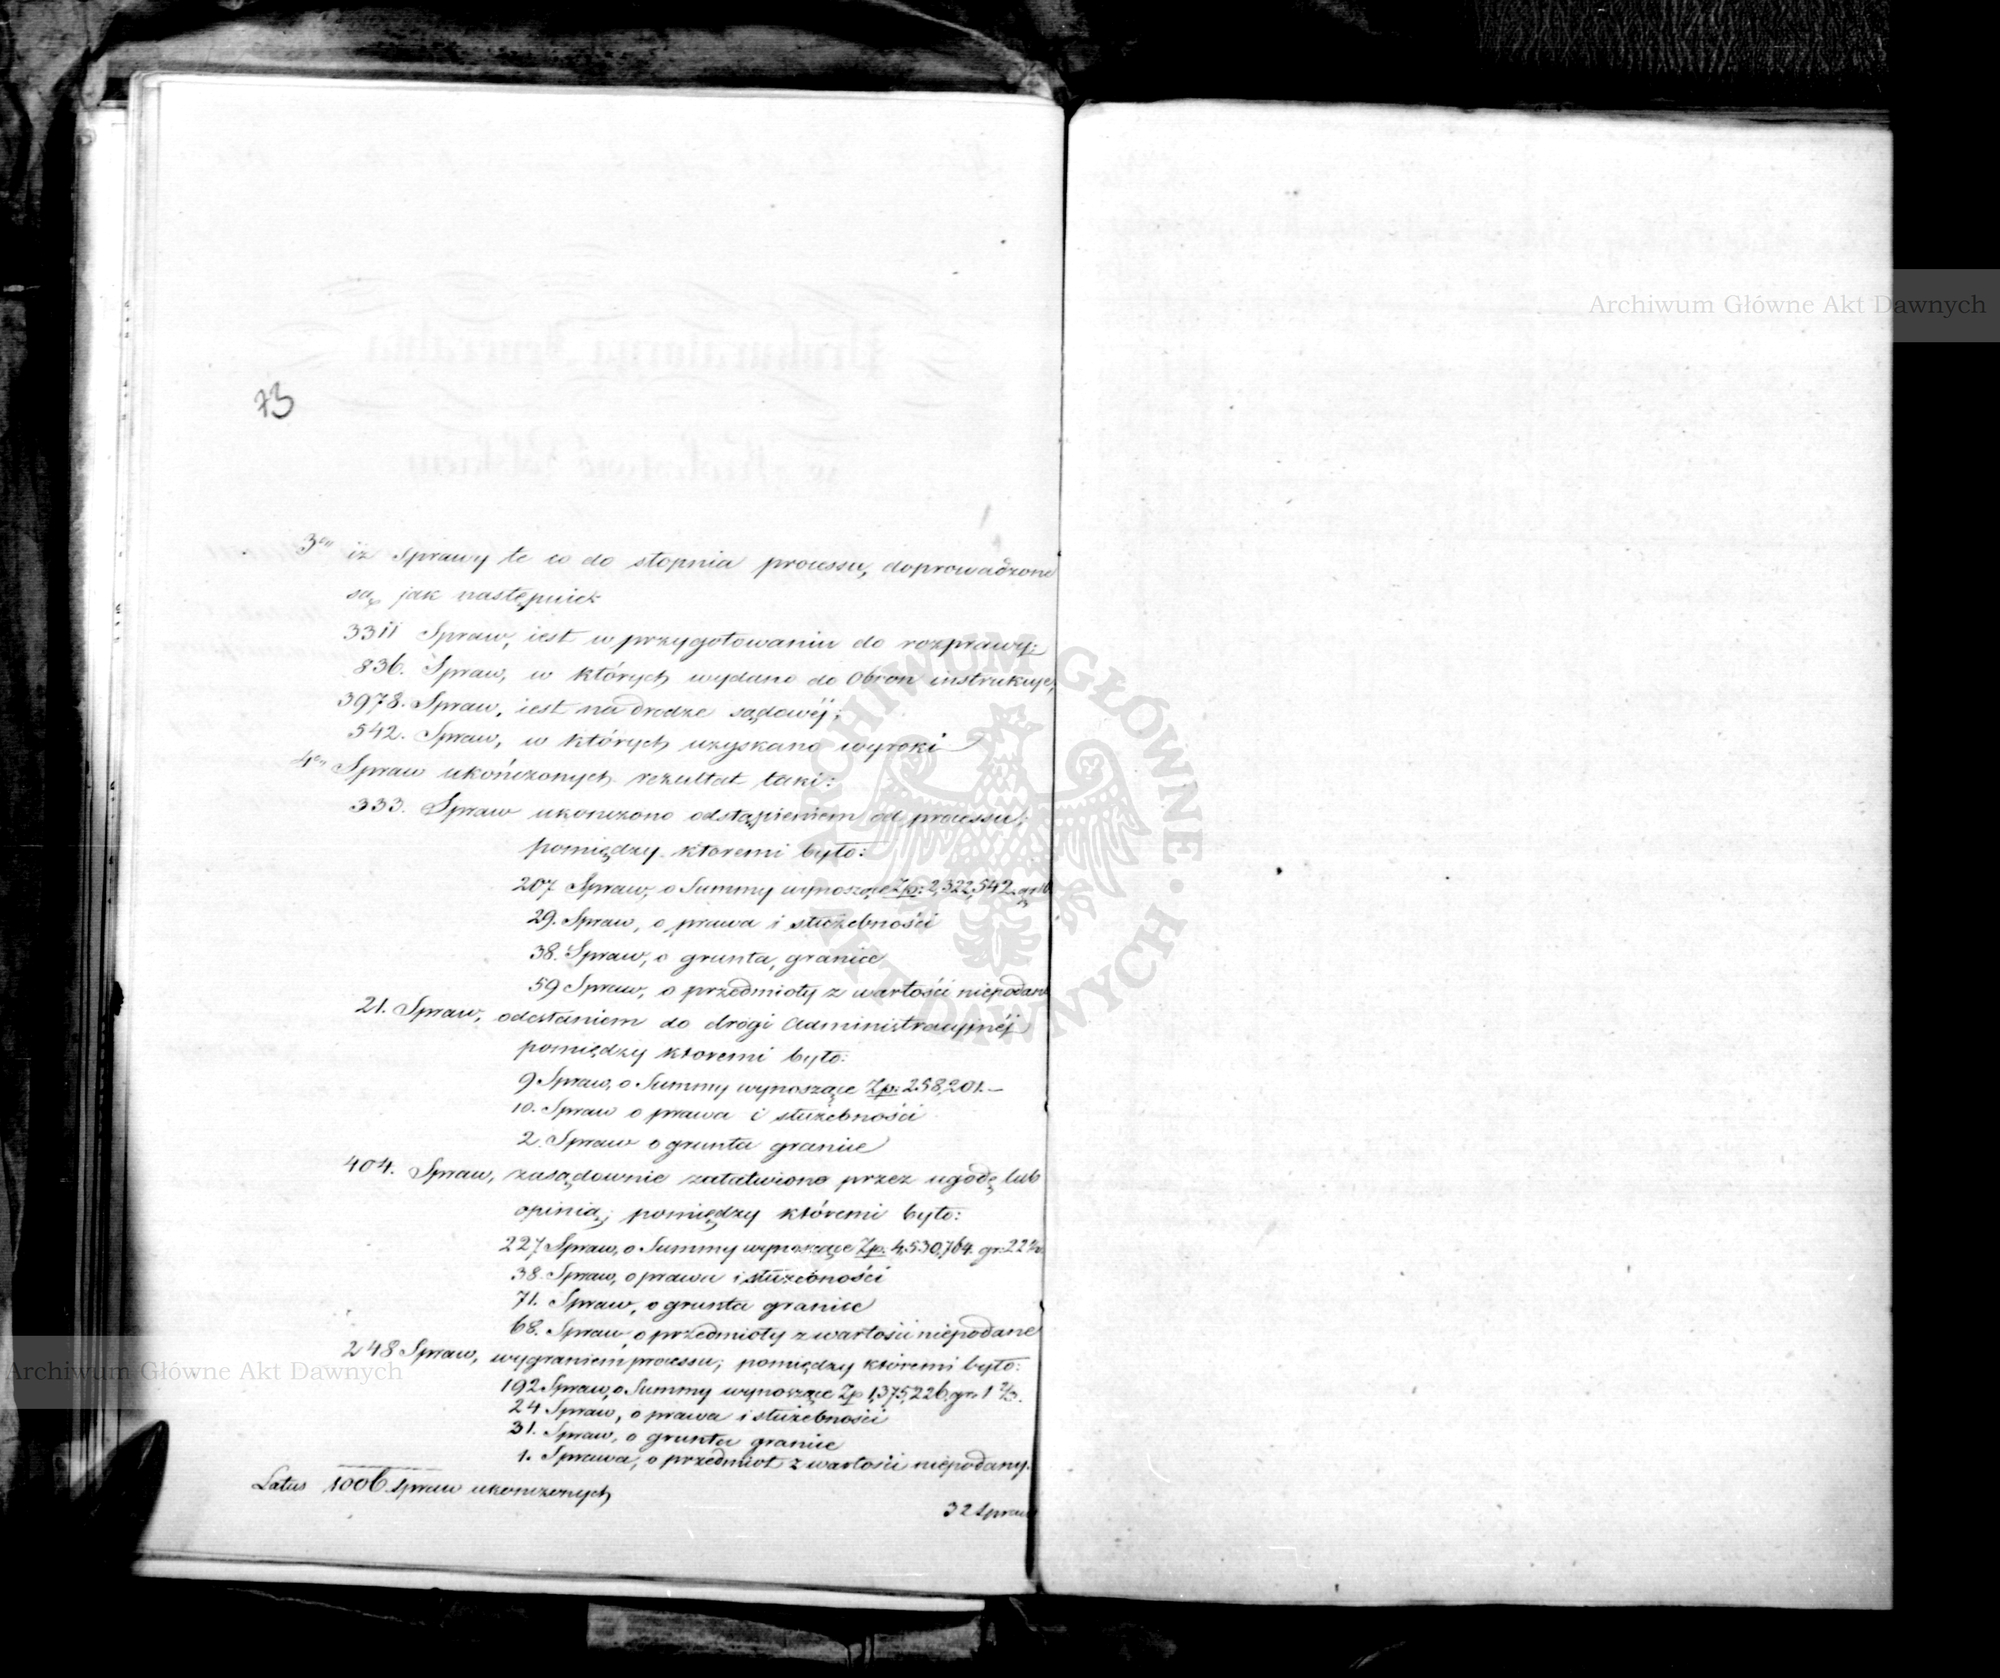 73
3en iż Sprawy te co do stopnia processu, doprowadzone
są, jak następuie:
3311 Spraw, iest w przygotowaniu do rozprawy;
836. Spraw, w których wydano do Obron instrukcye,
3978. Spraw, iest na drodze sądowéj;
542. Spraw, w których uzyskano wyroki
4en Spraw ukończonych rezultat taki:
333. Spraw ukonczono odstąpieniem od processu;
pomiędzy ktoremi było:
207 Spraw, o Summy wynoszące Zp: 2,322,542 gr
29. Spraw, o prawa i służebności
38. Spraw, o grunta, granice
59 Spraw, o przedmioty z wartości niepodane
21. Spraw, odesłaniem do drogi Administracyjnéj
pomiędzy ktoremi było:
9 Spraw, o Summy wynoszące Zp: 258,201.—
10. Spraw o prawa i służebności
2. Spraw o grunta granice
404. Spraw, zasądownie załatwiono przez ugodę lub
opinią; pomiędzy któremi było:
227 Spraw, o Summy wynoszące Zp: 4,530,764. gr: 22
38. Spraw, o prawa i służebności
71. Spraw, o grunta granice
68. Spraw, o przedmioty z wartości niepodane
248 Spraw, wygraniem processu; pomiędzy któremi było:
192 Spraw, o Summy wynoszące Zp 1,375,226. gr. 1 2/3.
24 Spraw, o prawa i służebności
31. Spraw, o grunta granice
1. Sprawa, o przedmiot z wartości niepodany.
Latus 1006. spraw ukonczonych
32 spraw
Archiwum Główne Akt Dawnych
Archiwum Główne Akt Dawnych
ARCHIWUM GŁÓWNE AKT DAWNYCH